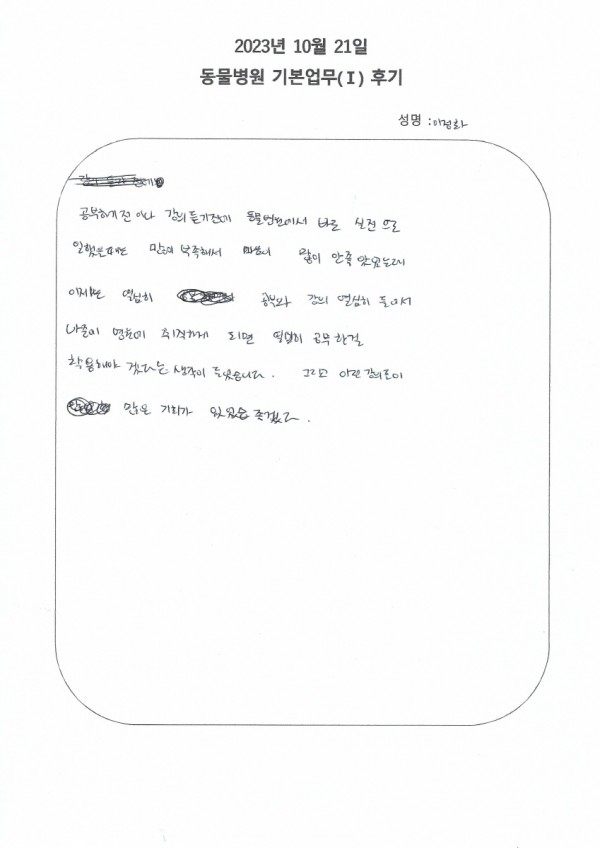 2023년 10월 21일
동물병원 기본업무(Ⅰ) 후기
성명 : 이정화
공부하기 전 이나 강의 듣기전에 동물병원에서 바로 실전 으로
일했을때는 많이 부족해서 많이 안좋 았었는데
이제는 열심히 공부와 강의 열심히 들어서
나중에 병원에 취직하게 되면 열심히 공부한걸
활용해야 겠다는 생각이 들었습니다. 그리고 이런 강의들이
많은 기회가 있었음 좋겠다.